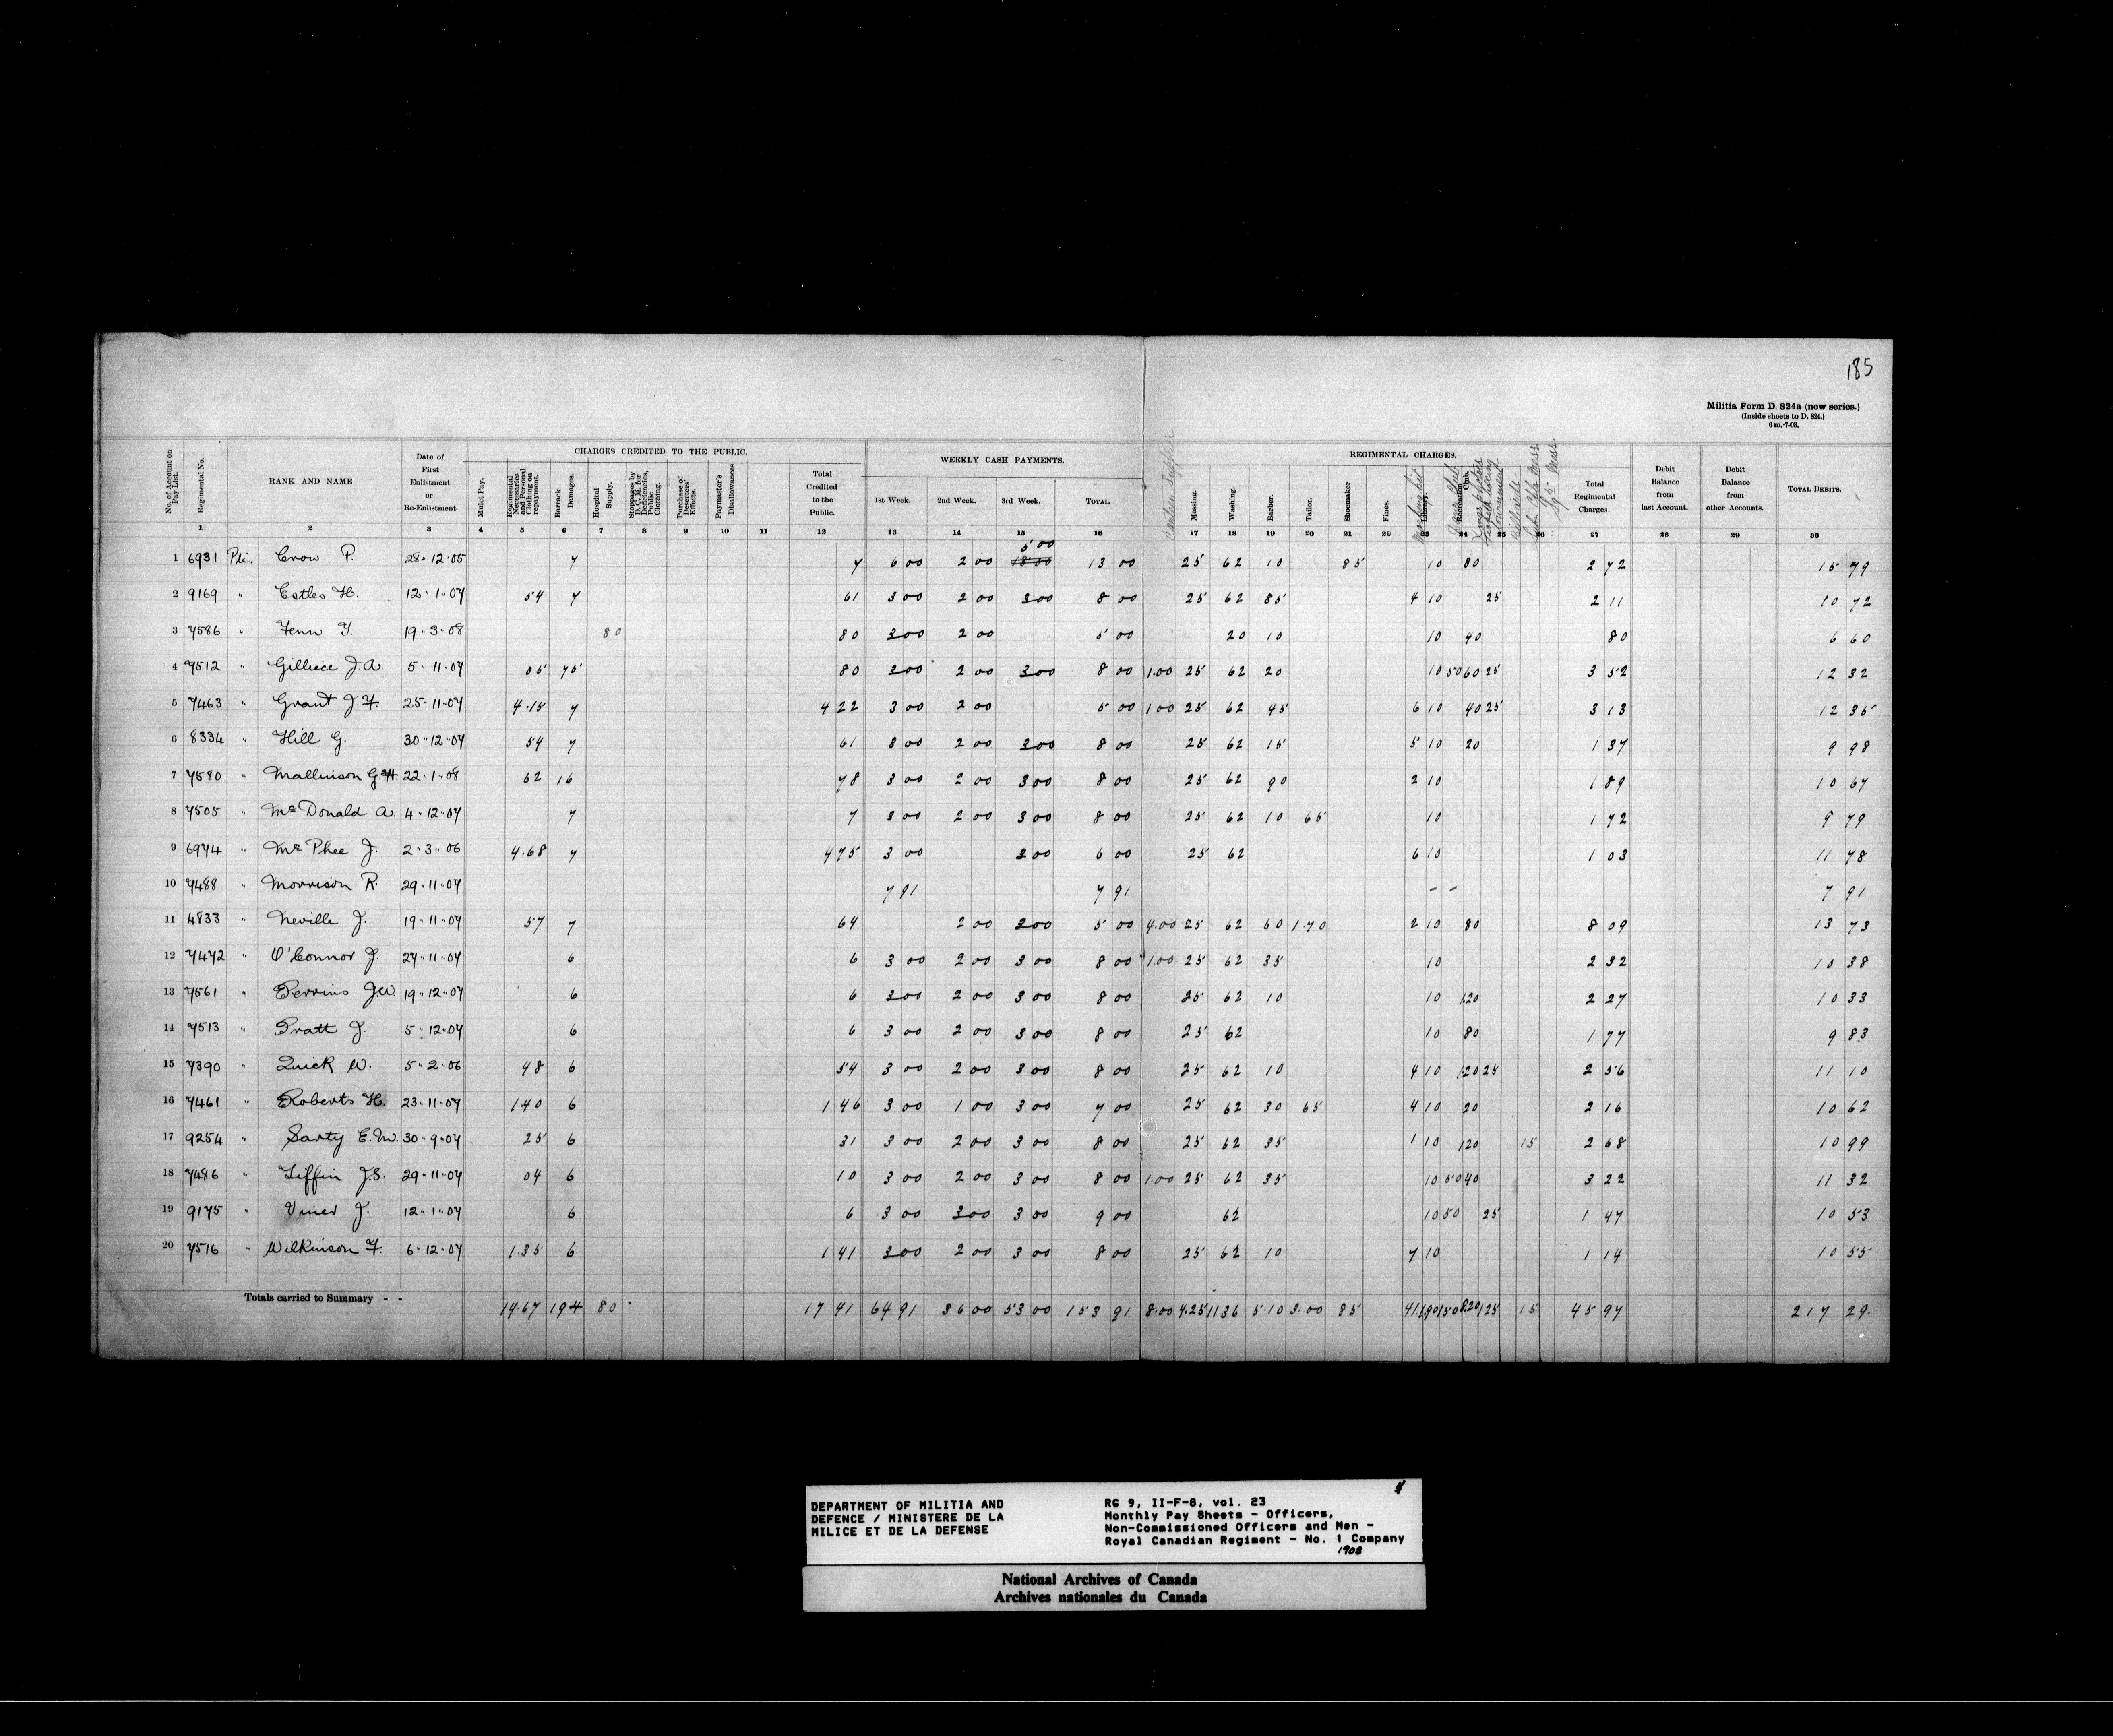 185
Militia Form D. 824a (new series.)
(Inside sheets to D. 824.)
6 m.-7-08.
No. of Account on Pay List. Regimental No. RANK AND NAME Date of First Enlistment or Re-Enlistment CHARGES CREDITED TO THE PUBLIC. WEEKLY CASH PAYMENTS. REGIMENTAL CHARGES. Debit Balance from last Account. Debit Balance from other Accounts. TOTAL DEBITS.
Mulct Pay. Regimental Necessaries and Personal Clothing on repayment. Barrack Damages. Hospital Supply. Stoppages by D. C. M. for Deficiencies, Public Clothing. Purchase of Deserters' Effects. Paymaster's Disallowances Total Credited to the Public. 1st Week. 2nd Week. 3rd Week. TOTAL. Messing. Washing. Barber. Tailor. Shoemaker Fines. Library. Recreation Club. Billiards Total Regimental Charges.
1 2 3 4 5 6 7 8 9 10 11 12 13 14 15 16 17 18 19 20 21 22 23 24 25 26 27 28 29 30
5 00
1 6931 Pte. Crow P. 28·12·05 7 7 6 00 2 00 13 00 25 62 10 85 10 80 2 72 15 79
2 9169 " Estles H. 12·1·07 54 7 61 3 00 2 00 3 00 8 00 25 62 85 4 10 25 2 11 10 72
3 7586 " Fenn T. 19·3·08 80 80 3 00 2 00 5 00 20 10 10 40 80 6 60
4 7512 " Gilliece J.A. 5·11·07 05 75 80 3 00 2 00 3 00 8 00 1.00 25 62 20 10 50 60 25 3 52 12 32
5 7463 " Grant J.F. 25·11·07 4.15 7 4 22 3 00 2 00 5 00 1 00 25 62 45 6 10 40 25 3 13 12 35
6 8334 " Hill G. 30·12·07 54 7 61 3 00 2 00 3 00 8 00 25 62 15 5 10 20 1 37 9 98
7 7580 " Mallinson G.H. 22·1·08 62 16 78 3 00 2 00 3 00 8 00 25 62 90 2 10 1 89 10 67
8 7505 " McDonald A. 4·12·07 7 7 3 00 2 00 3 00 8 00 25 62 10 65 10 1 72 9 79
9 6974 " McPhee J. 2·3·06 4.68 7 4 75 3 00 3 00 6 00 25 62 6 10 1 03 11 78
10 7488 " Morrison R. 29·11·07 7 91 7 91 - - 7 91
11 4833 " Neville J. 19·11·07 57 7 64 2 00 3 00 5 00 4.00 25 62 60 1.70 2 10 80 8 09 13 73
12 7472 " O'Connor J. 27·11·07 6 6 3 00 2 00 3 00 8 00 1.00 25 62 35 10 2 32 10 38
13 7561 " Perrins J.W. 19·12·07 6 6 3 00 2 00 3 00 8 00 25 62 10 10 1.20 2 27 10 33
14 7513 " Pratt J. 5·12·07 6 6 3 00 2 00 3 00 8 00 25 62 10 80 1 77 9 83
15 7390 " Quick W. 5·2·06 48 6 54 3 00 2 00 3 00 8 00 25 62 10 4 10 1.20 25 2 56 11 10
16 7461 " Roberts H. 23·11·07 1.40 6 1 46 3 00 1 00 3 00 7 00 25 62 30 65 4 10 20 2 16 10 62
17 9254 " Sarty E.M. 30·9·07 25 6 31 3 00 2 00 3 00 8 00 25 62 35 1 10 1.20 15 2 68 10 99
18 7486 " Tiffin J.S. 29·11·07 04 6 10 3 00 2 00 3 00 8 00 1.00 25 62 35 10 50 40 3 22 11 32
19 9175 " Viner J. 12·1·07 6 6 3 00 3 00 3 00 9 00 62 10 50 25 1 47 10 53
20 7516 " Wilkinson F. 6·12·07 1.35 6 1 41 3 00 2 00 3 00 8 00 25 62 10 7 10 1 14 10 55
Totals carried to Summary - - 14.67 194 80 17 41 64 91 36 00 53 00 153 91 8.00 4.25 11 36 5.10 3.00 85 41 1.90 1.50 8.20 1.25 15 45 97 217 29
DEPARTMENT OF MILITIA AND
DEFENCE / MINISTERE DE LA
MILICE ET DE LA DEFENSE
RG 9, II-F-8, vol. 23
Monthly Pay Sheets - Officers,
Non-Commissioned Officers and Men -
Royal Canadian Regiment - No. 1 Company
1908
National Archives of Canada
Archives nationales du Canada